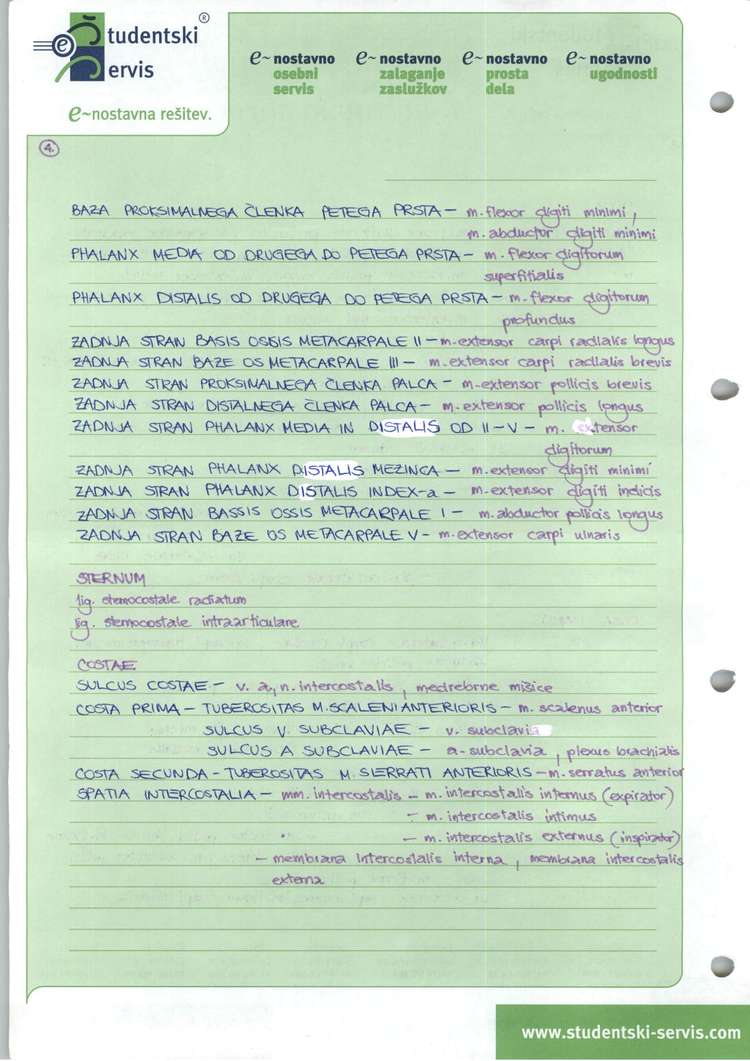 Študentski Servis ®
e~nostavna rešitev.
e~nostavno osebni servis
e~nostavno zalaganje zaslužkov
e~nostavno prosta dela
e~nostavno ugodnosti
4.
BAZA PROKSIMALNEGA ČLENKA PETEGA PRSTA – m. flexor digiti minimi,
m. abductor digiti minimi
PHALANX MEDIA OD DRUGEGA DO PETEGA PRSTA – m. flexor digitorum
superfitialis
PHALANX DISTALIS OD DRUGEGA DO PETEGA PRSTA – m. flexor digitorum
profundus
ZADNJA STRAN BASIS OSSIS METACARPALE II – m. extensor carpi radialis longus
ZADNJA STRAN BAZE OS METACARPALE III – m. extensor carpi radialis brevis
ZADNJA STRAN PROKSIMALNEGA ČLENKA PALCA – m. extensor pollicis brevis
ZADNJA STRAN DISTALNEGA ČLENKA PALCA – m. extensor pollicis longus
ZADNJA STRAN PHALANX MEDIA IN DISTALIS OD II – V – m. extensor
digitorum
ZADNJA STRAN PHALANX DISTALIS MEZINCA – m. extensor digiti minimi
ZADNJA STRAN PHALANX DISTALIS INDEX-a – m. extensor digiti indicis
ZADNJA STRAN BASSIS OSSIS METACARPALE I – m. abductor pollicis longus
ZADNJA STRAN BAZE OS METACARPALE V – m. extensor carpi ulnaris
STERNUM
lig. sternocostale radiatum
lig. sternocostale intraarticulare
COSTAE
SULCUS COSTAE – v. a, n. intercostalis, medrebrne mišice
COSTA PRIMA – TUBEROSITAS M. SCALENI ANTERIORIS – m. scalenus anterior
SULCUS V. SUBCLAVIAE – v. subclavia
SULCUS A SUBCLAVIAE – a. subclavia, plexus brachialis
COSTA SECUNDA – TUBEROSITAS M. SERRATI ANTERIORIS – m. serratus anterior
SPATIA INTERCOSTALIA – mm. intercostalis – m. intercostalis internus (expirator)
– m. intercostalis intimus
– m. intercostalis externus (inspirator)
– membrana intercostalis interna, membrana intercostalis
externa
www.studentski-servis.com